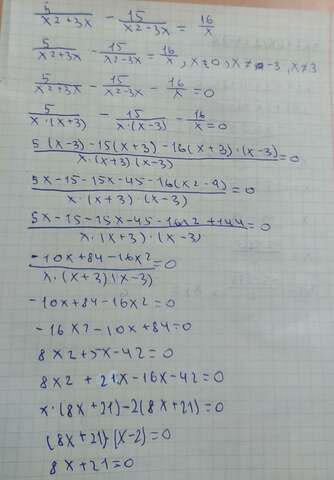 5/x2+3x - 15/x2-3x = 16/x
5/x2+3x - 15/x2-3x = 16/x, x≠0, x≠-3, x≠3
5/x2+3x - 15/x2-3x - 16/x = 0
5/x·(x+3) - 15/x·(x-3) - 16/x = 0
5(x-3)-15(x+3)-16(x+3)·(x-3)/x·(x+3)(x-3) = 0
5x-15-15x-45-16(x2-9)/x·(x+3)·(x-3) = 0
5x-15-15x-45-16x2+144/x·(x+3)·(x-3) = 0
-10x+84-16x2/x·(x+3)(x-3) = 0
-10x+84-16x2=0
-16x2-10x+84=0
8x2+5x-42=0
8x2+21x-16x-42=0
x·(8x+21)-2(8x+21)=0
(8x+21)·(x-2)=0
8x+21=0